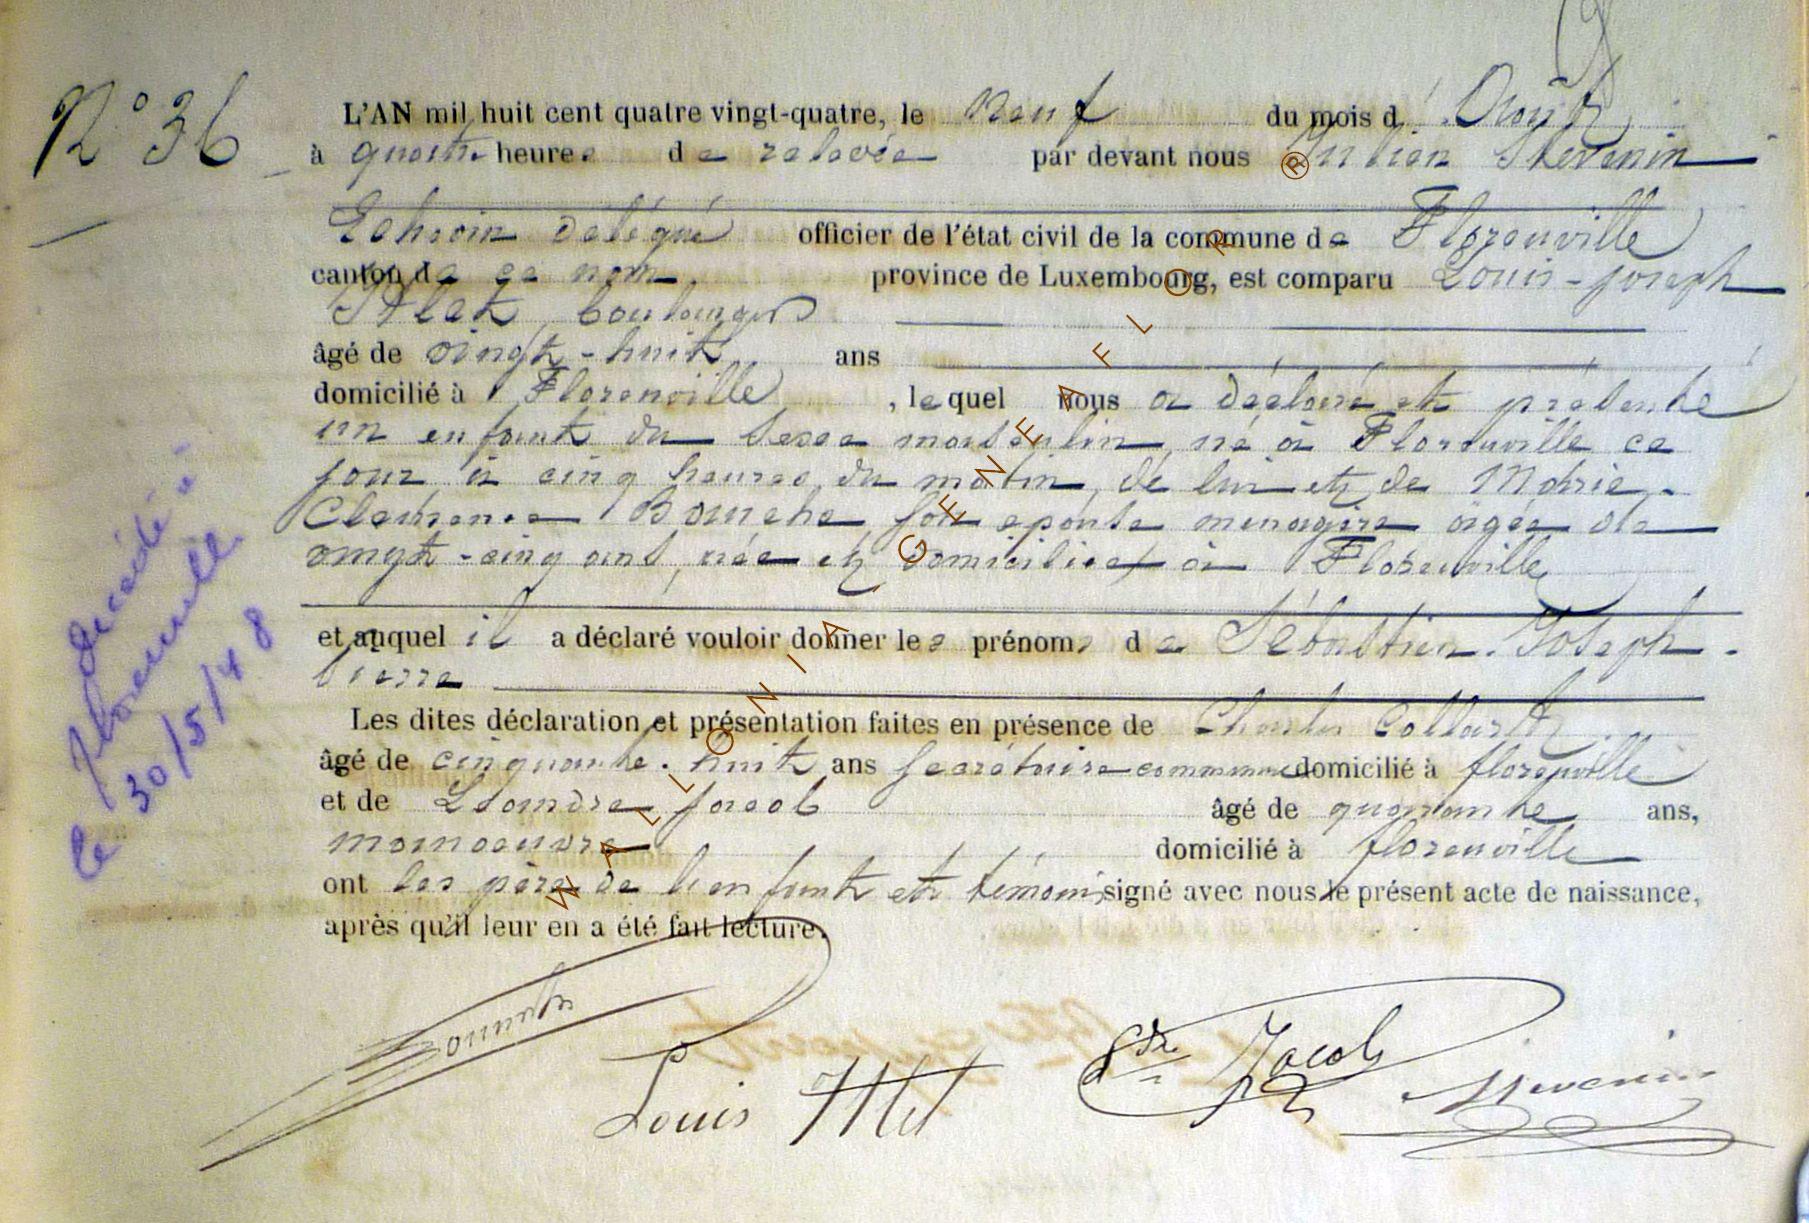 N° 36
L'AN mil huit cent quatre vingt-quatre, le neuf du mois d'Août
à quatre heures de relevée par devant nous Julien Thevenin
Echevin délégué officier de l'état civil de la commune de Florenville
canton de ce nom province de Luxembourg, est comparu Louis-joseph
boulanger
âgé de vingt-huit ans
domicilié à Florenville, lequel nous a déclaré et présenté
un enfant du sexe masculin, né à Florenville ce
jour à cinq heures du matin, de lui et de Marie-
Clemence son épouse menagère âgée de
vingt-cinq ans, née et domiciliée à Florenville
et auquel il a déclaré vouloir donner les prénoms de Sébastien-Joseph-
Pierre
Les dites déclaration et présentation faites en présence de Charles Collart
âgé de cinquante-huit ans secrétaire communal domicilié à florenville
et de Léandre jacob âgé de quarante ans,
manoeuvre domicilié à florenville
ont les père de l'enfant et témoins signé avec nous le présent acte de naissance,
après qu'il leur en a été fait lecture.
décédé à
Florenville
le 30/5/48
Louis
Jacob
WALLONIA GENEAFLOR ®